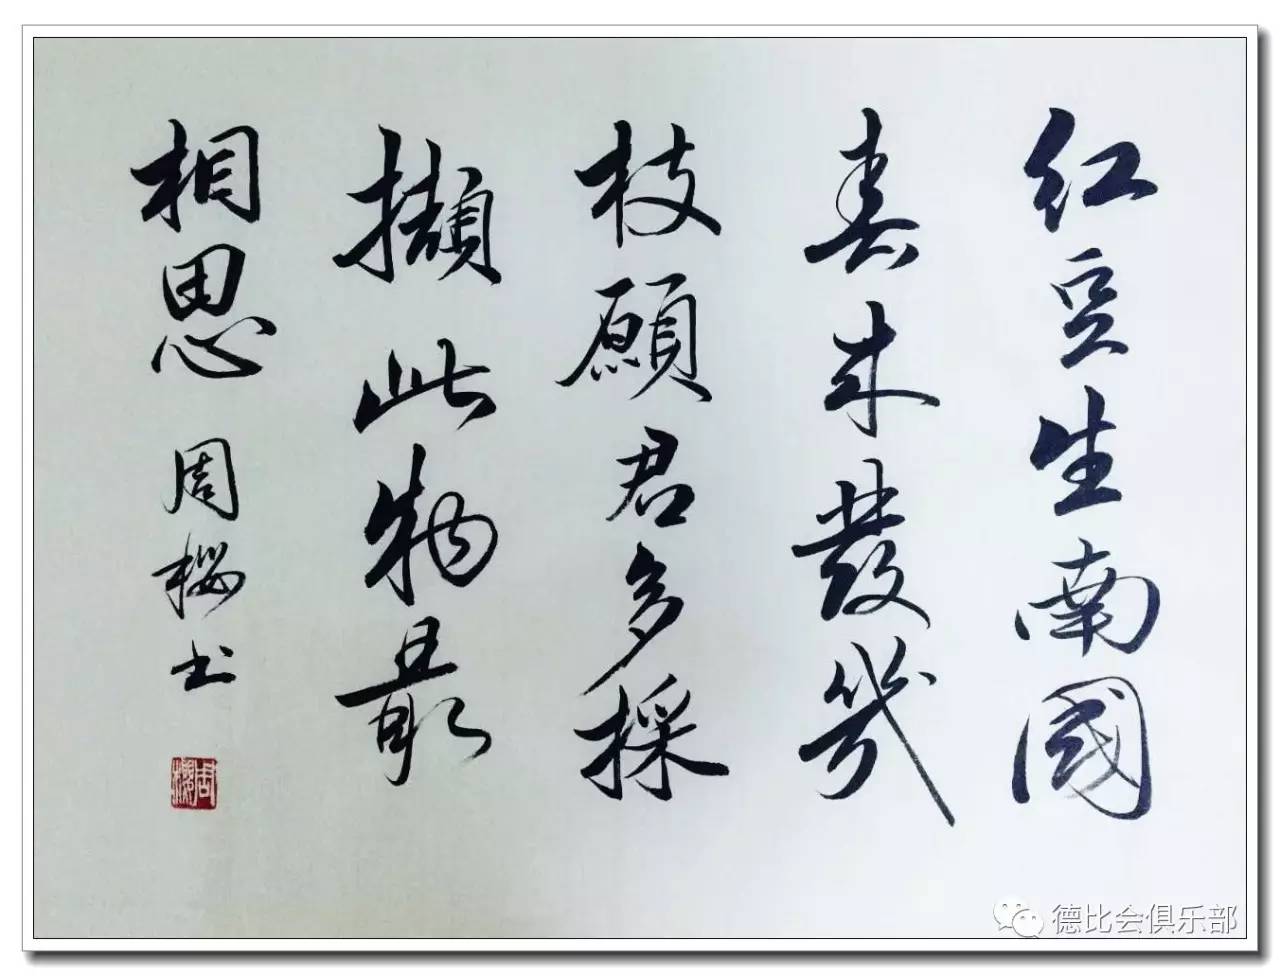 红豆生南國
春来發幾
枝願君多採
擷此物最
相思 周樱书
周樱
德比会俱乐部